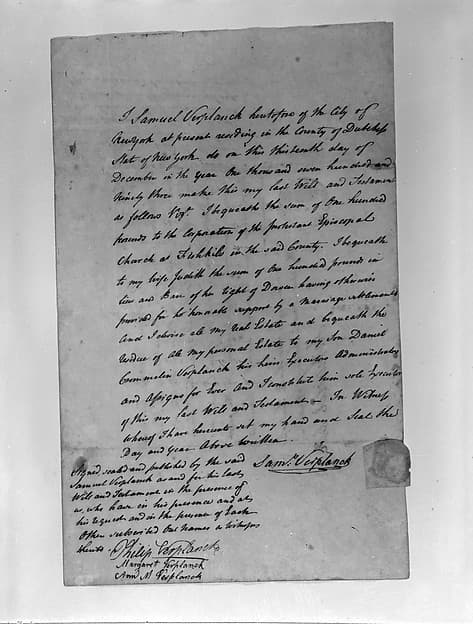 I Samuel Verplanck heretofore of the City of
NewYork at present residing in the County of Dutchess
State of New York do on this thirteenth day of
December in the year One thousand seven hundred and
Ninety three make this my last Will and Testament
as follows Vizt. I bequeath the sum of One hundred
Pounds to the Corporation of the protestant Episcopal
Church at Fishkill in the said County. I bequeath
to my wife Judith the sum of One hundred pounds in
lieu and Barr of her right of Dower having otherwise
provided for her honorable support by a Marriage settlement
And I devise all my real Estate and bequeath the
residue of all my personal Estate to my Son Daniel
Crommelin Verplanck his heirs Executors Administrators
and Assigns for Ever And I constitute him sole Executor
of this my last Will and Testament. In Witness
whereof I have hereunto set my hand and Seal the
Day and Year Above written.
Signed sealed and published by the said
Saml. Verplanck
Samuel Verplanck as and for his last
Will and Testament in the presence of
us, who have in his presence and at
his request and in the presence of Each
Other subscribed Our Names as Witnesses
Philip Verplanck
Margaret Verplanck
Ann M Verplanck